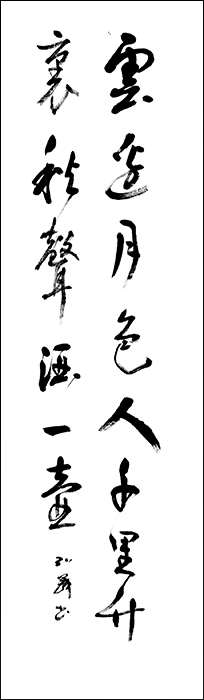 雲邊月色人千里竹
裏秋聲酒一壺